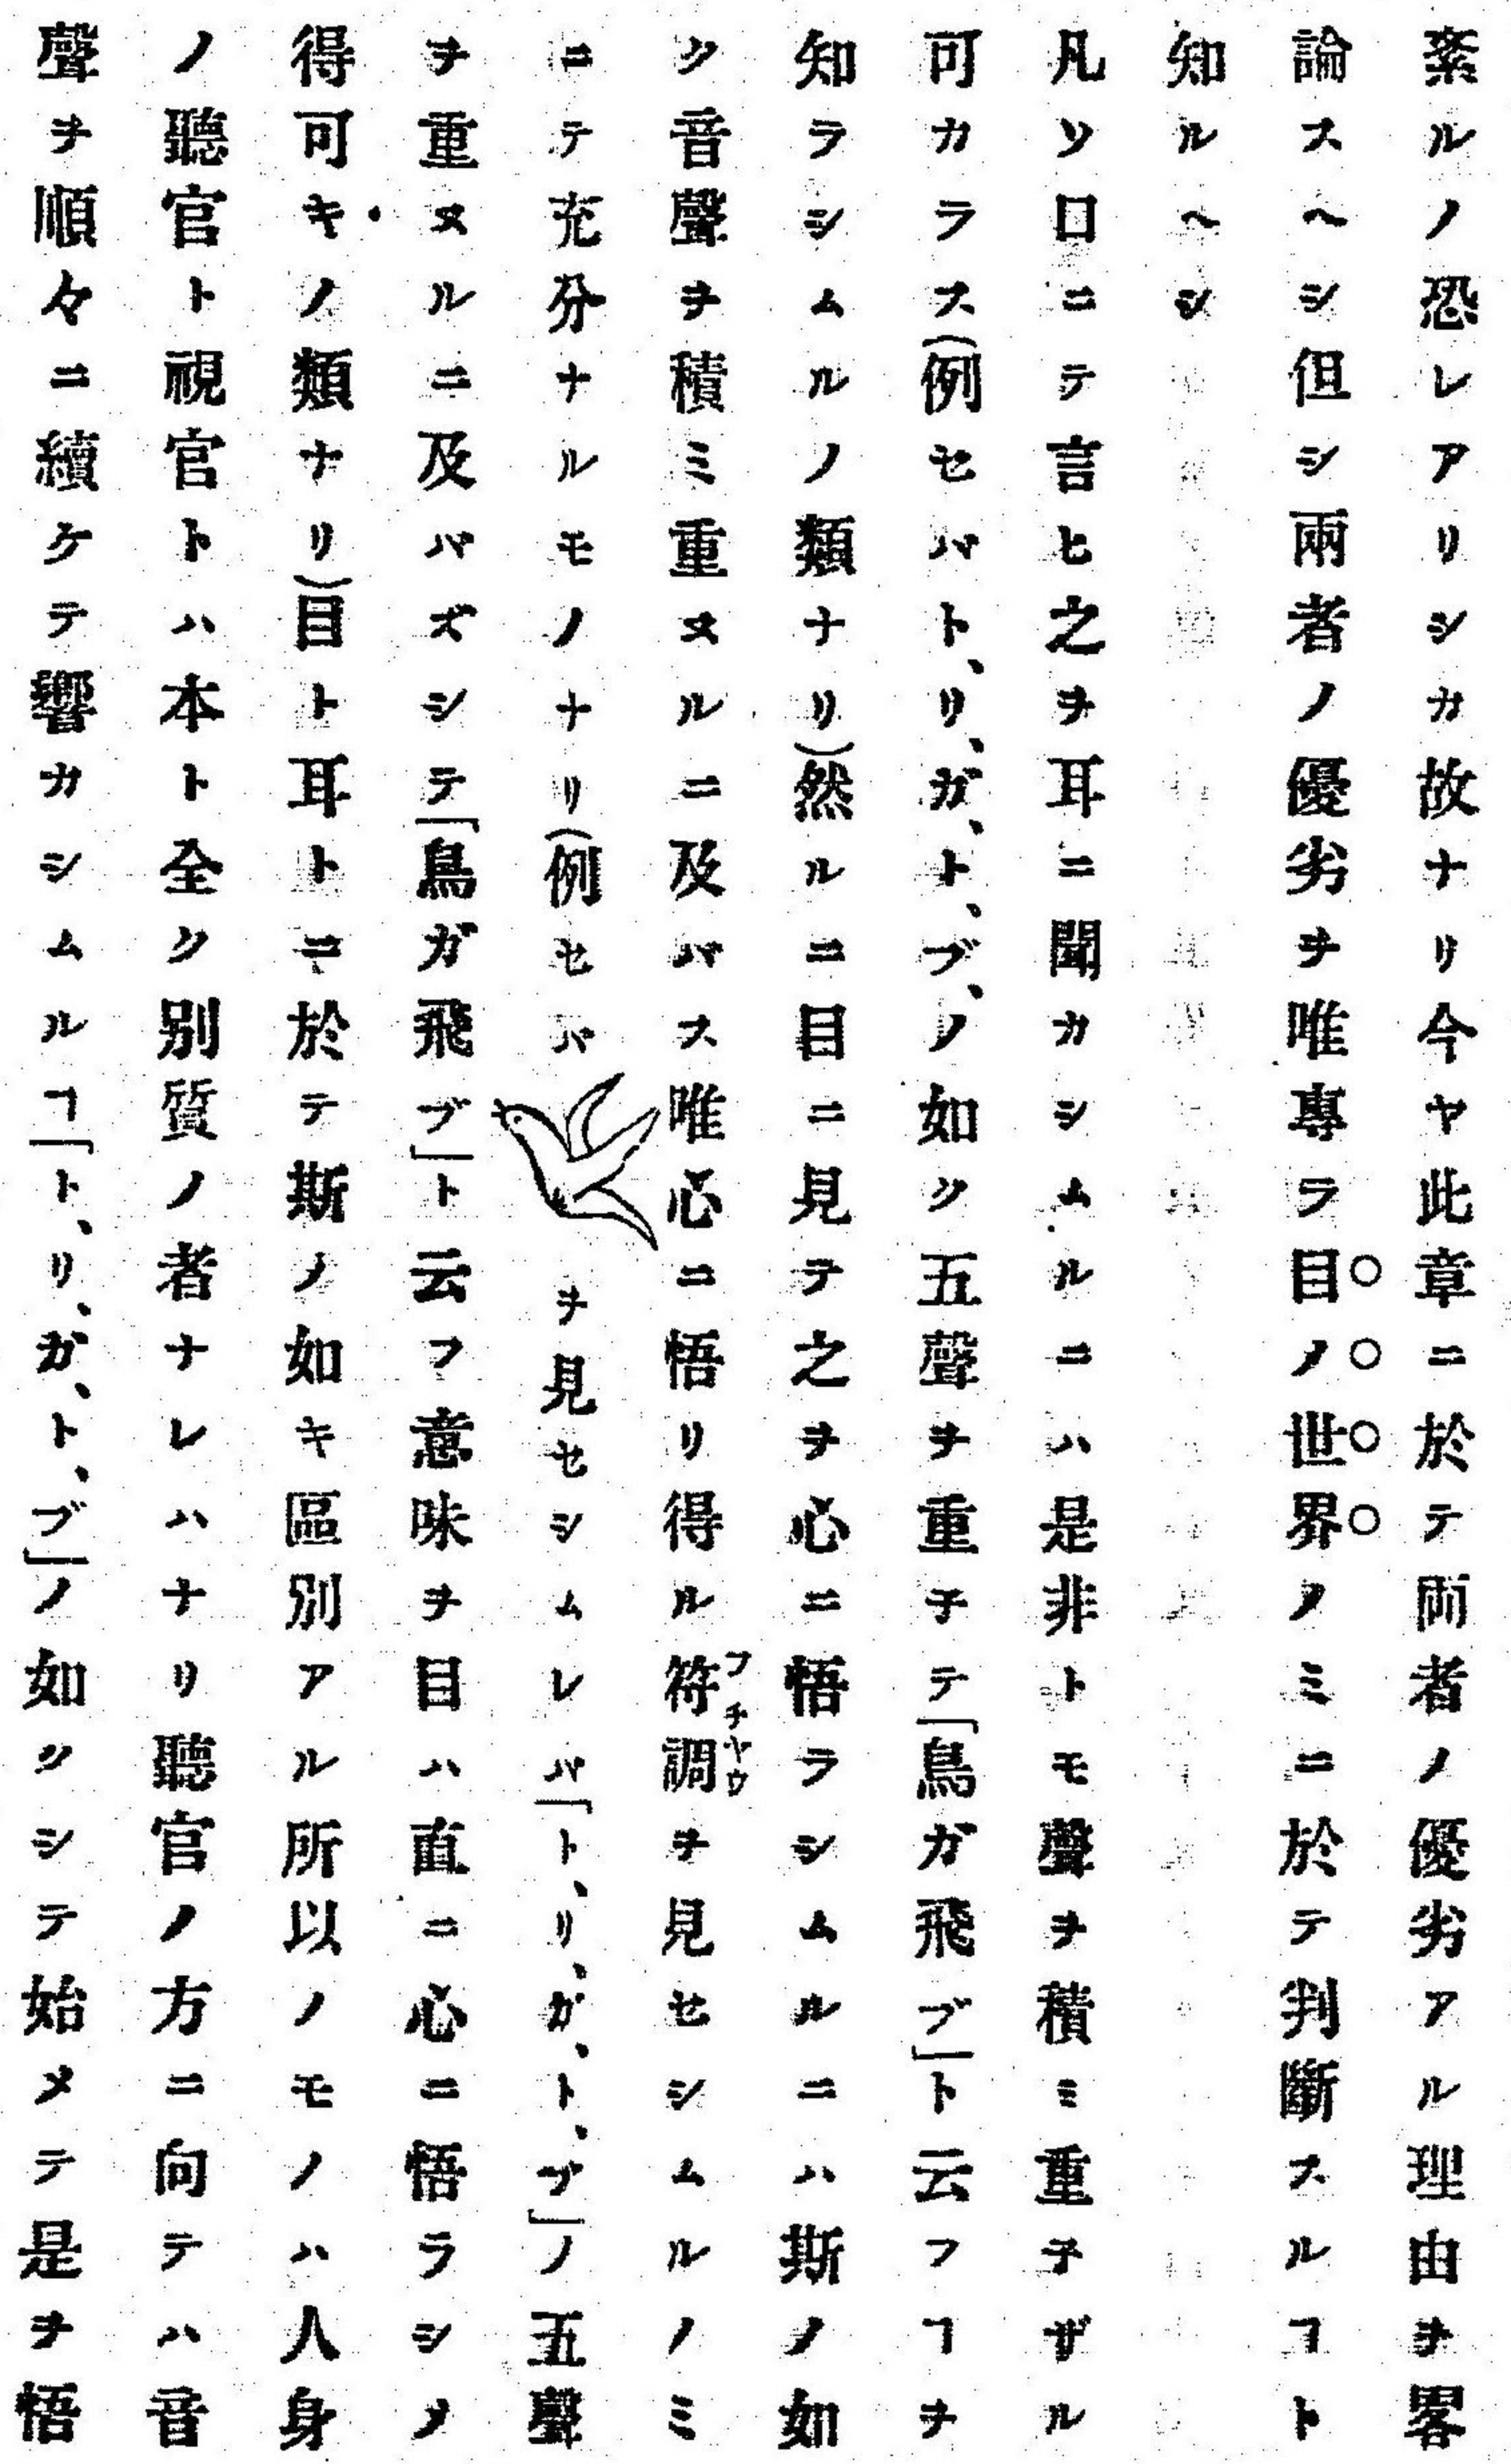 紊ルノ恐レアリシカ故ナリ今ヤ此章ニ於テ両者ノ優劣アル理由ヲ畧
論スヘシ但シ兩者ノ優劣ヲ唯專ラ目ノ世界ノミニ於テ判斷スルヿト
知ルヘシ
凡ソ口ニテ言ヒ之ヲ耳ニ聞カシムルニハ是非トモ聲ヲ積ミ重子ザル
可カラス(例セバト、リ、ガ、ト、ブ、ノ如ク五聲ヲ重子テ「鳥ガ飛ブ」ト云フヿヲ
知ラシムルノ類ナリ)然ルニ目ニ見テ之ヲ心ニ悟ラシムルニハ斯ノ如
ク音聲ヲ積ミ重ヌルニ及バス唯心ニ悟リ得ル符調フチヤウヲ見セシムルノミ
ニテ充分ナルモノナリ(例セバヲ見セシムレバ「ト、リ、ガ、ト、ブ」ノ五聲
ヲ重ヌルニ及バズシテ「鳥ガ飛ブ」ト云フ意味ヲ目ハ直ニ心ニ悟ラシメ
得可キノ類ナリ)目ト耳トニ於テ斯ノ如キ區別アル所以ノモノハ人身
ノ聽官ト視官トハ本ト全ク別質ノ者ナレハナリ聽官ノ方ニ向テハ音
聲ヲ順々ニ續ケテ響カシムルヿ「ト、リ、ガ、ト、ブ」ノ如クシテ始メテ是ヲ悟